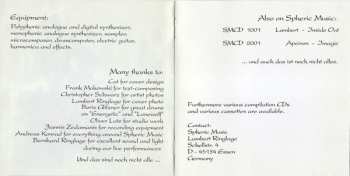 Equipment:
Polyphonic analogue and digital synthesizer,
monophonic analogue synthesizer, sampler,
microcomposer, drumcomputer, electric guitar,
harmonica and effects.
Many thanks to:
Cat for cover design
Frank Makowski for text-composing
Christopher Schwarz for artist photos
Lambert Ringlage for cover photo
Boris Olfman for great drums
on "Energetic" and "Lonewolf"
Oliver Lutz for studio work
Joannis Zedamanis for recording equipment
Andreas Konrad for everything around Spheric Music
Bernhard Ringlage for excellent sound and light
during our live performances
Und das sind noch nicht alle ...
Also on Spheric Music:
SMCD 1001 Lambert - Inside Out
SMCD 2001 Apeiron - Imagic
... and auch das ist noch nicht alles.
Furthermore various compilation CDs
and various cassettes are available.
Contact:
Spheric Music
Lambert Ringlage
D - 45134 Essen
Germany